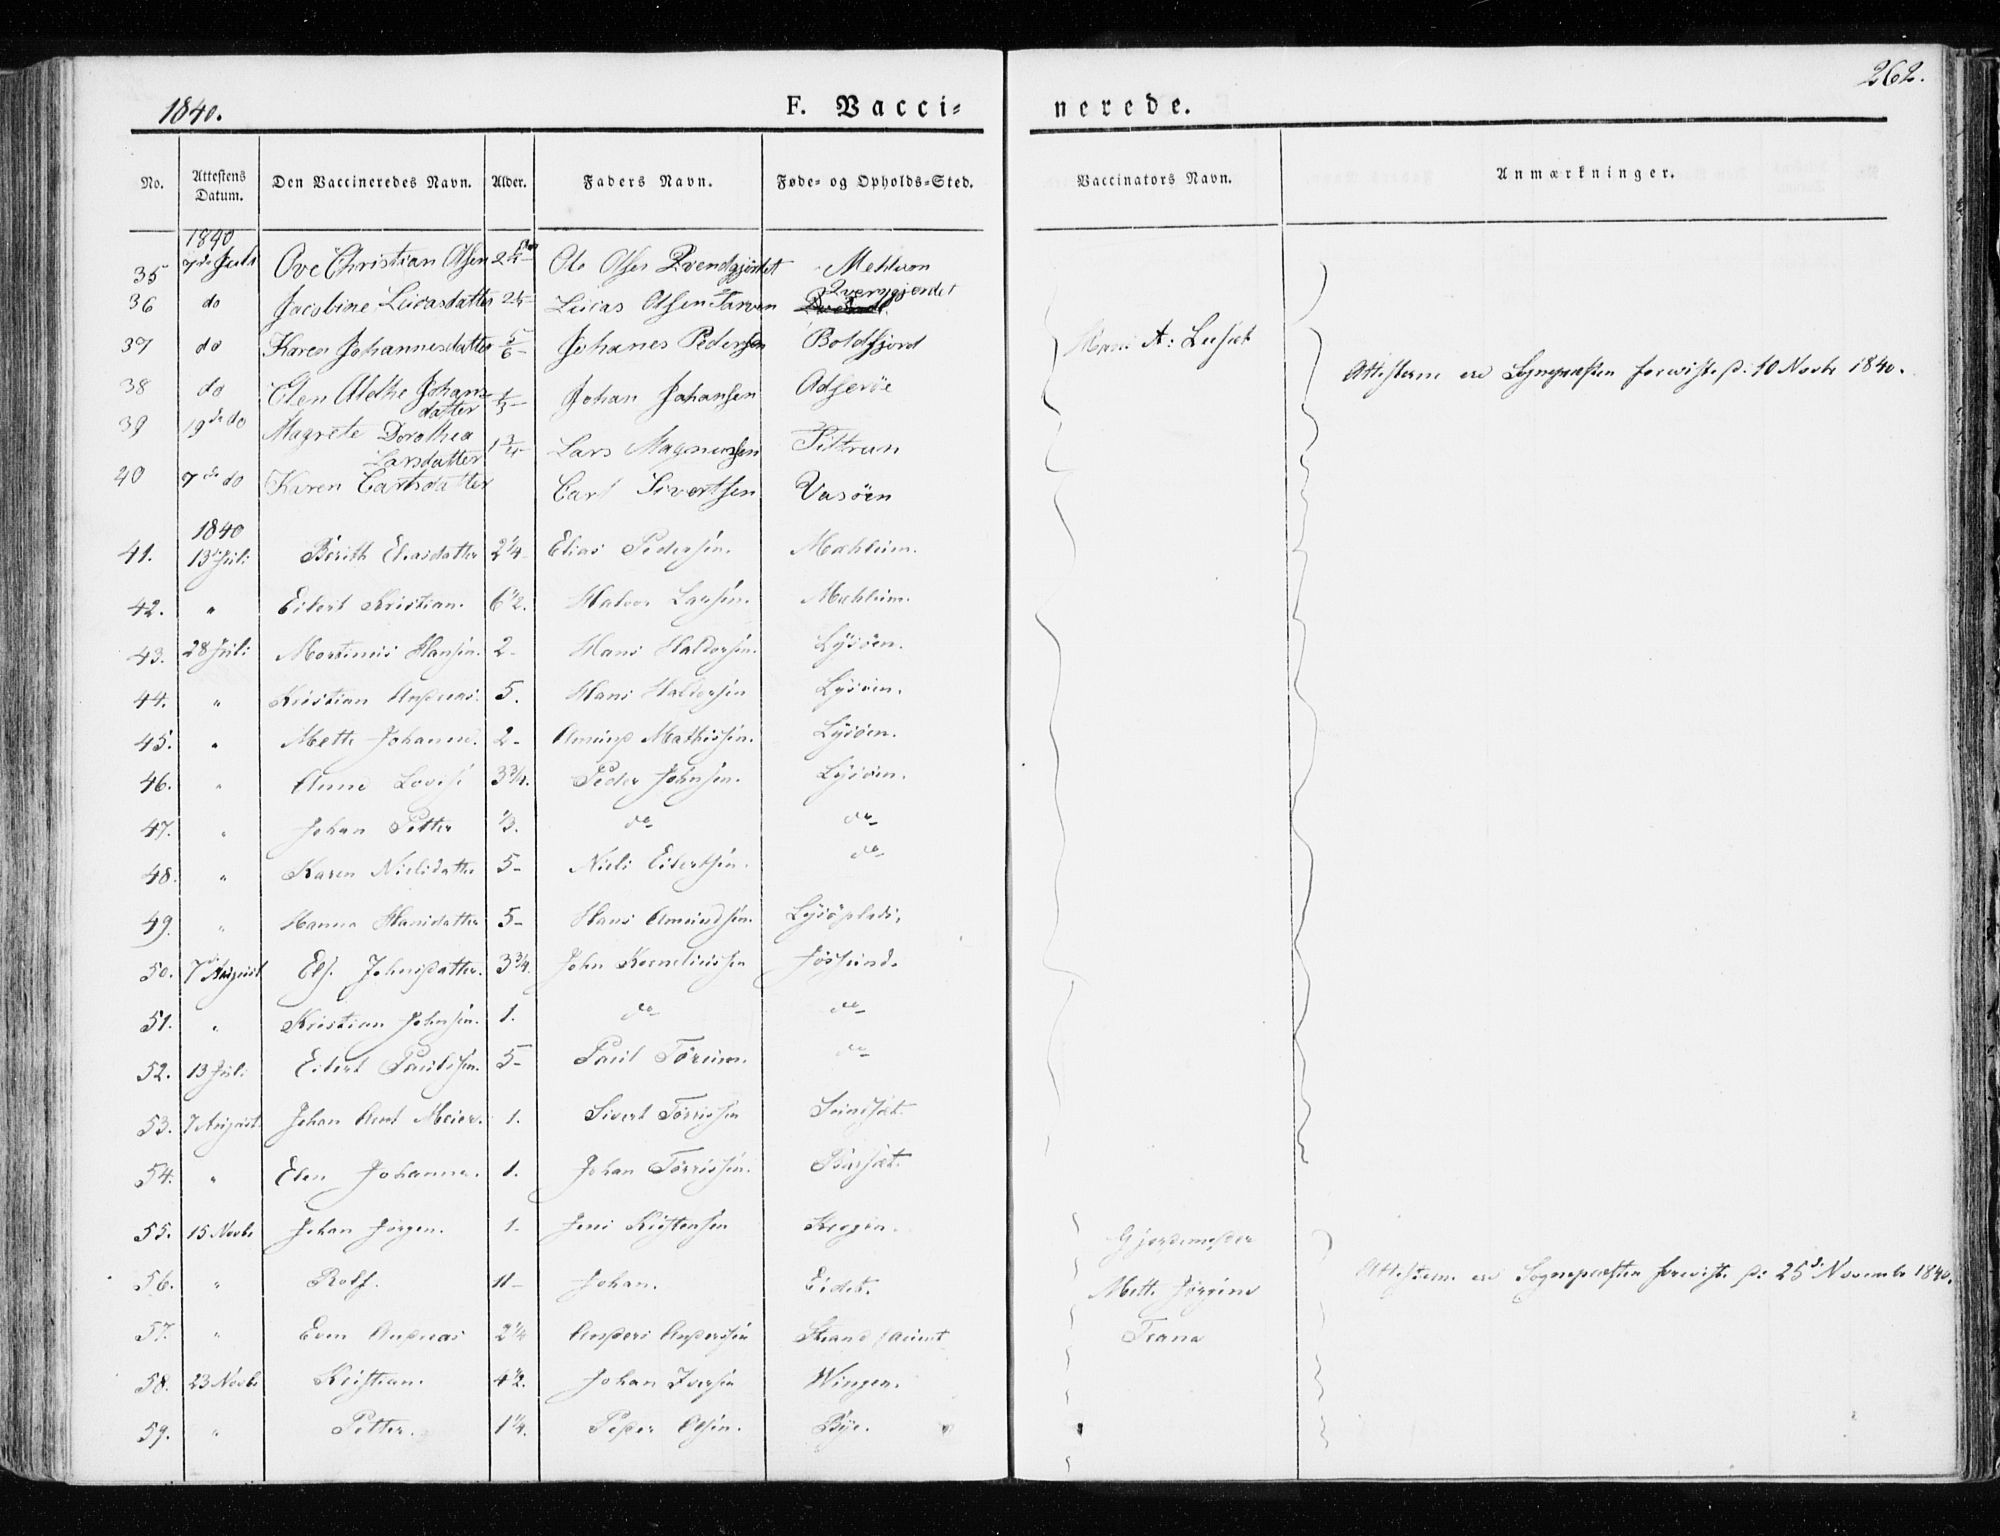 262.
1840. F. Vacci= nerede.
No. Attestens Datum. Den Vaccineredes Navn. Alder. Faders Navn. Føde- og Opholds-Sted. Vaccinators Navn. Anmærkninger.
1840
35 7de Juli Ove Christian Olsen 2 1/4 Ole Olsen Mehluon
Qverngjerdet
36 do Jacobine Lucasdatter 2 1/4 Lucas Olsen
37 do Karen Johannesdatter 5/6 Johanes Pedersen Boldfjord
38 do Elen Alethe Johans
datter 1/3 Johan Johansen
39 19de do Magrete Dorothea
Larsdatter 1 3/4 Lars Magnussen Tiltrem
40 7de do Karen Carlsdatter Carl Sivertsen Vasöen
Attesterne ere Sognepræsten foreviste d: 10 Novbr 1840.
1840
41. 13de Juli Berith Eliasdatter 2 1/4 Elias Pedersen. Mæhlum.
42. " Eilert Kristian. 6 1/2. Halvor Larsen. Mæhlum.
43. 28 Juli Mortinus Hansen. 2 Hans Haldorsen. Lysöen.
44. " Kristian Andreas. 5. Hans Haldorsen Lysöen.
45. " Mette Johanna. 2 Amund Mathissen. Lysöen.
46. " Anne Lovise 3 3/4. Peder Johnsen. Lysöen.
47. " Johan Petter 1/3. do do
48. " Karen Nielsdatter 5 Niels Eilertsen. do
49. " Hanna Hansdatter 5 Hans Amundsen. Lysöplads.
50. 7de August Else Johnsdatter. 3 3/4. John Korneliussen Jøssund.
51. " Kristian Johnsen. 1. do do
52. 13 Juli Eilert Paulssen. 5 Paul do
53. 7 August. Johan Arnt Meier. 1. Sivert Torrissen
54. " Elen Johanna. 1. Johan Torrissen.
55. 15 Novbr Johan Jørgen. 1. Jens Kristensen Gjordemoder
56. " Rolf. 11 Johan. Eidet. Mette Jørgine
Attesterne ere Sognepræsten foreviste d: 25de November 1840.
57. " Even Andreas 2 1/4 Anders Anderssen Strand Trana
58. 23 Novbr Kristian. 4 1/2. Johan Iversen Wingen.
59. " Petter. 1 1/4. Peder Olsen. Bye.